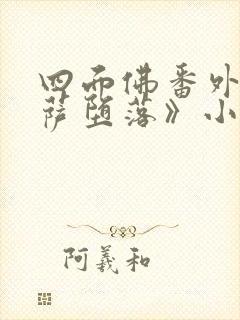 四面佛番外
萨堕落》小
阿羲和